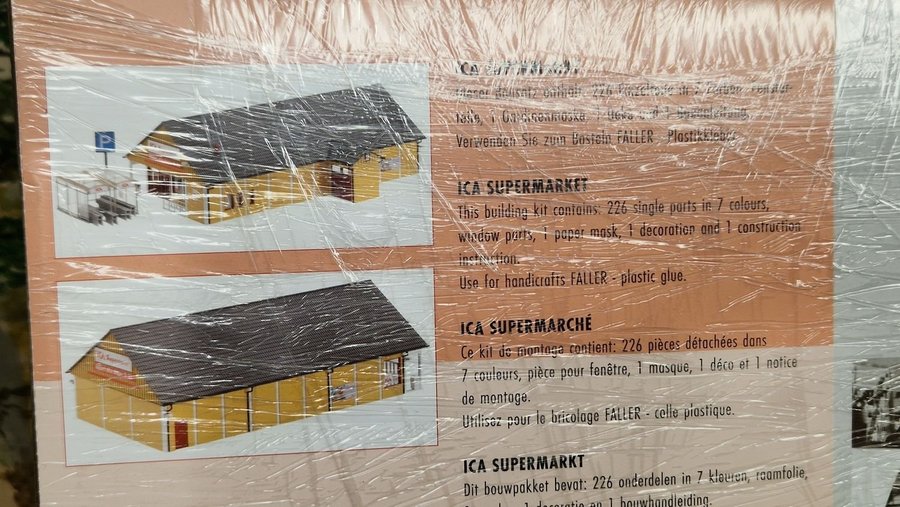 ICA
226
1 Gardinenmaske, 1 Deco und 1
Verwenden Sie zum Basteln FALLER - Plastikkleber.
ICA SUPERMARKET
This building kit contains: 226 single parts in 7 colours,
window parts, 1 paper mask, 1 decoration and 1 construction
instruction.
Use for handicrafts FALLER - plastic glue.
ICA SUPERMARCHÉ
Ce kit de montage contient: 226 pièces détachées dans
7 couleurs, pièce pour fenêtre, 1 masque, 1 déco et 1 notice
de montage.
Utilisez pour le bricolage FALLER - colle plastique.
ICA SUPERMARKT
Dit bouwpakket bevat: 226 onderdelen in 7 kleuren, raamfolie,
1 decoratie en 1 bouwhandleiding.
P